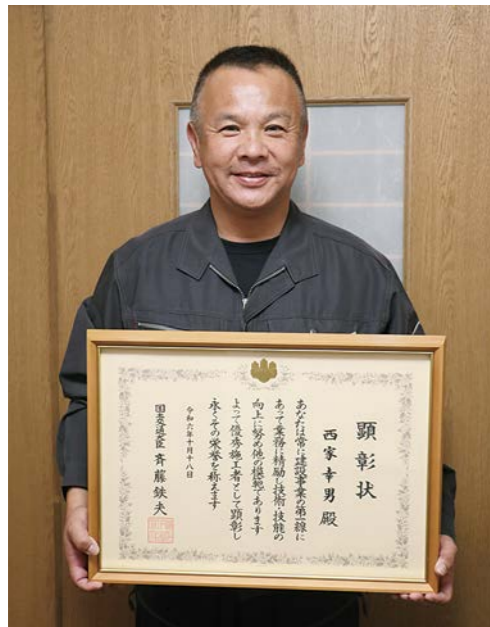 顕彰状
西家幸男殿
あなたは常に建設事業の第一線に
あって業務に精励し技術・技能の
向上に努め他の模範であります
よって優秀施工者として顕彰し
永くその栄誉を称えます
令和六年十月十八日
国土交通大臣 斉藤鉄夫